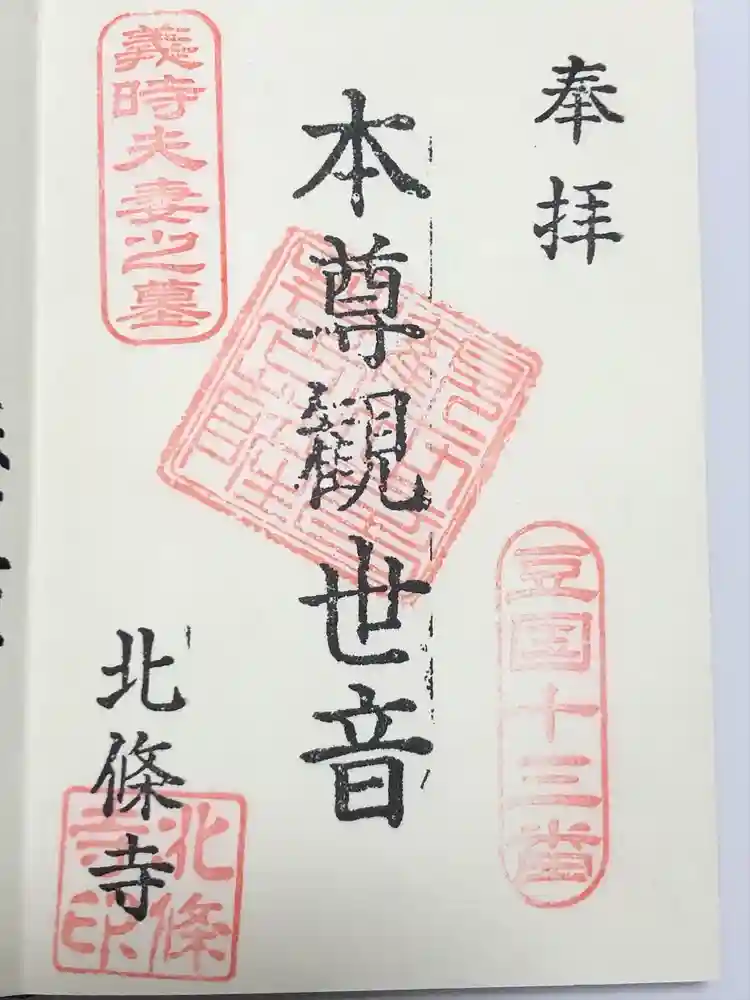 奉拝
豆国十三
本尊觀世音
義時夫妻之墓
北條寺
北條寺印